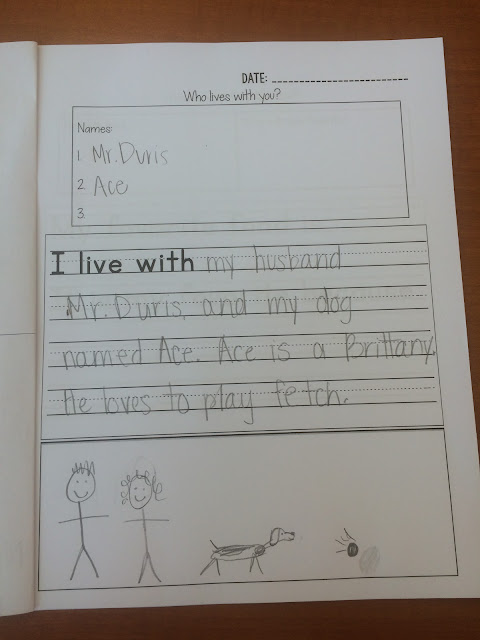 DATE: ____________________
Who lives with you?
Names:
1. Mr. Duris
2. Ace
3.
I live with my husband
Mr. Duris, and my dog
named Ace. Ace is a Brittany.
He loves to play fetch.